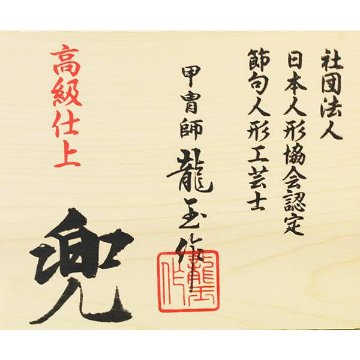 社団法人
日本人形協会認定
節句人形工芸士
甲冑師 龍玉作
高級仕上
兜